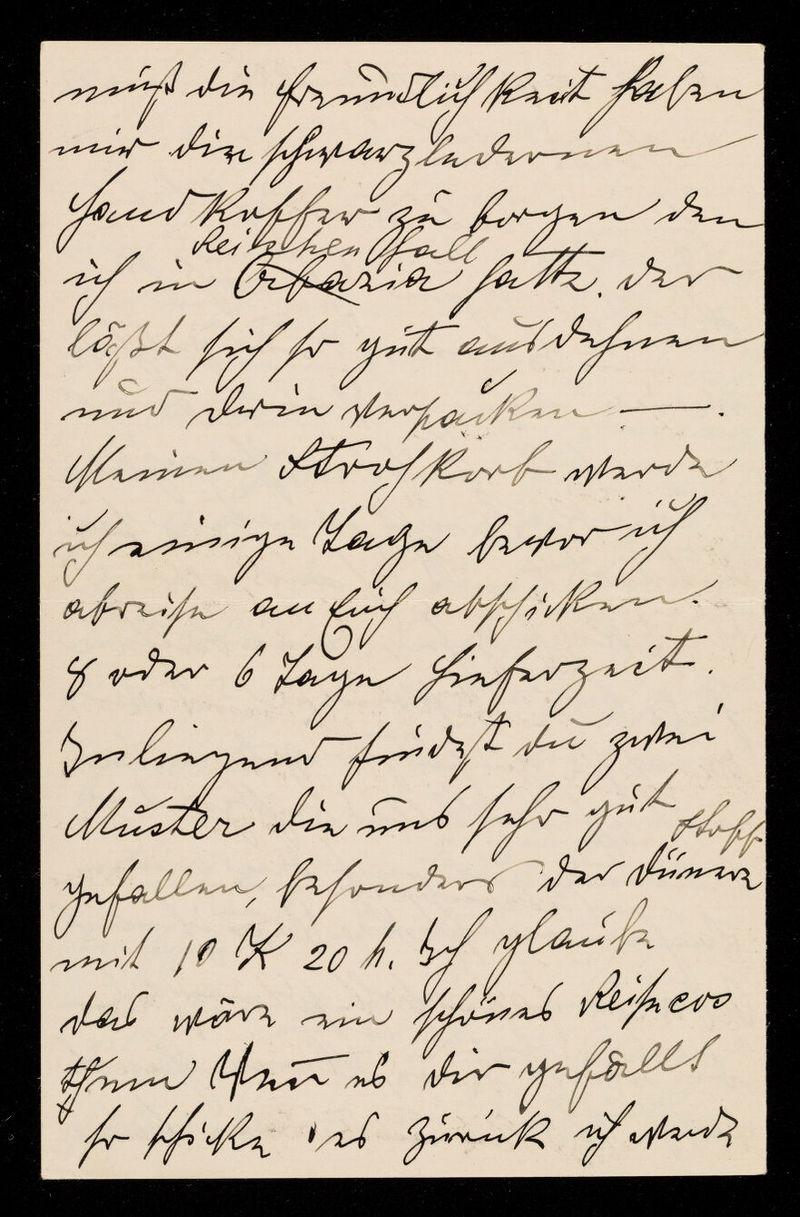 muß die Freundlichkeit haben
mir den schwarzledernen
Handkoffer zu borgen den
Reichenhall
ich in Abazia hatte. der
läßt sich so gut ausdehnen
und darin verpacken — .
Meinen Strohkorb werde
ich einige Tage bevor ich
abreise an Euch abschicken.
8 oder 6 Tage Lieferzeit.
Inliegend findest du zwei
Muster die uns sehr gut
Stoff
gefallen, besonders der dünere
mit 10 K 20 h. Ich glaube
das wäre ein schönes Reisecos
thum Wenn es dir gefällt
so schicke es zurück ich werde